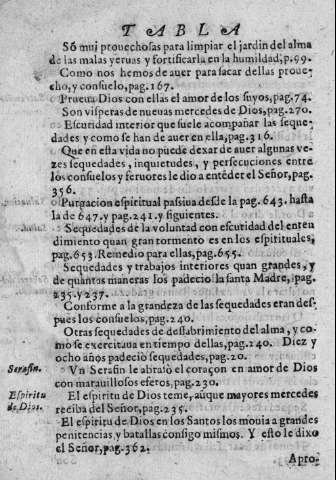 TABLA
Só mui prouechosas para limpiar el jardin del alma
de las malas yeruas y fortificarla en la humildad, p.99.
Como nos hemos de auer para sacar dellas proue-
cho, y consuelo, pag.167.
Prueua Dios con ellas el amor de los suyos, pag.74.
Son visperas de nueuas mercedes de Dios, pag.270.
Escuridad interior que suele acompañar las seque-
dades y como se han de auer en ella, pag.316.
Que en esta vida no puede dexar de auer algunas ve-
zes sequedades, inquietudes, y persecuciones entre
los consuelos y feruores le dio a enteder el Señor, pag.
356.
Purgacion espiritual passiua desde la pag.643. hasta
la de 647. y pag.241. y siguientes.
Sequedades de la voluntad con escuridad del enten
dimiento quan gran tormento es en los espirituales,
pag.653. Remedio para ellas, pag.655.
Sequedades y trabajos interiores quan grandes, y
de quantas maneras los padecio la santa Madre, pag.
235. y 237.
Conforme a la grandeza de las sequedades eran des-
pues los consuelos, pag.240.
Otras sequedades de dessabrimiento del alma, y co-
mo se exercitaua en tiempo dellas, pag.240. Diez y
ocho años padecio sequedades, pag.20.
Serafin. Vn Serafin le abrasó el coraçon en amor de Dios
con marauillosos efetos, pag.230.
Espiritu El espiritu de Dios teme, aũque mayores mercedes
de Dios. reciba del Señor, pag.235.
El espiritu de Dios en los Santos los mouia a grandes
penitencias, y batallas consigo mismos. Y esto le dixo
el Señor, pag.362.
Apro-